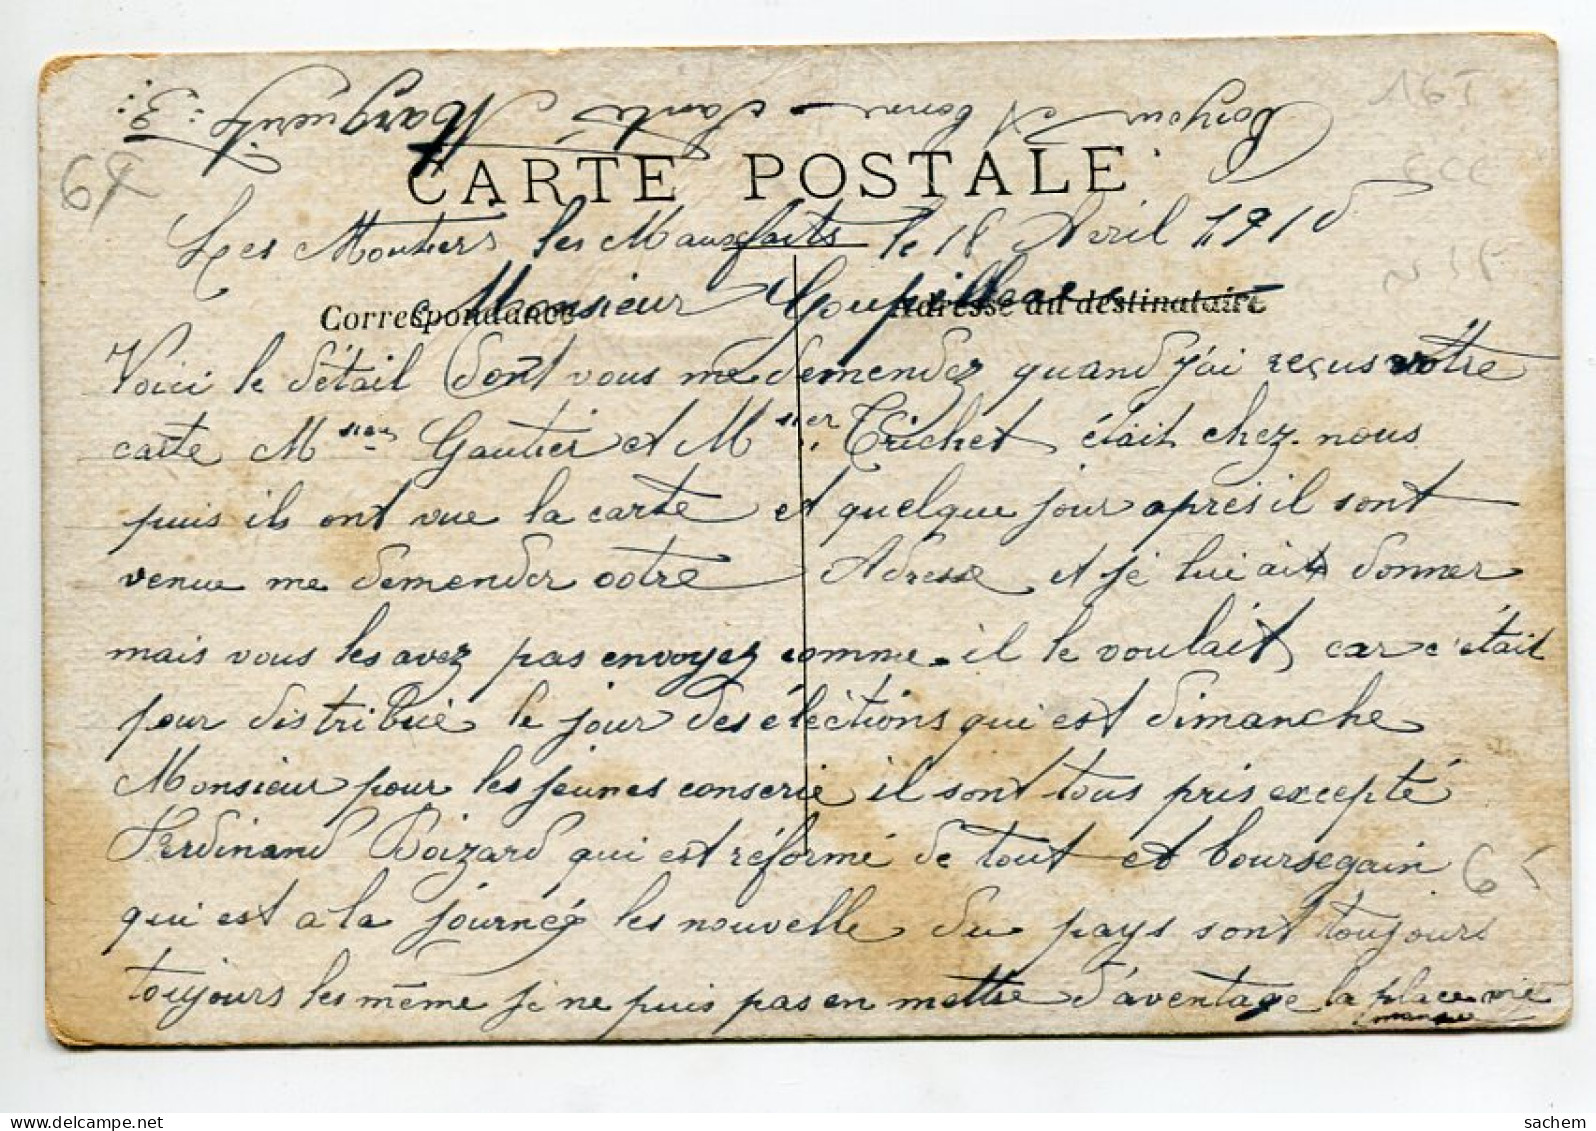 Bonjour et bonne Santé Marguerite
CARTE POSTALE
Les Moutiers les Mauxfaits le 18 Avril 1910
Monsieur Goupilleau
Correspondance Adresse du destinataire
Voici le détail dont vous me demendez quand j'ai reçus votre
carte Msieu Gautier et Msier Trichet était chez nous
puis ils ont vue la carte et quelque jour après il sont
venue me demender votre Adresse et je lui ait donner
mais vous les avez pas envoyez comme il le voulait car c'était
pour distribué le jour des éléctions qui est dimanche
Monsieur pour les jeunes conscrie il sont tous pris excepté
Ferdinand Boizard qui est réformé de tout et Boursegain
qui est a la journée les nouvelle du pays sont toujours
toujours les même je ne puis pas en mettre d'aventage la place me
manque
69
65
sachem